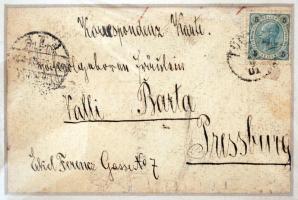 Korrespondenz Karte.
Hochwolgeboren Fräulein
Kalli Barta
Pressburg
Erkel Ferenc Gasse No 7
5 5